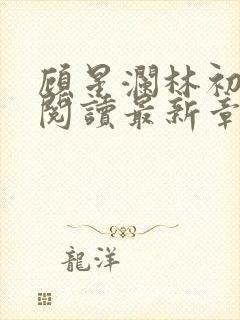 顾星澜林初
閱讀最新章
龍洋